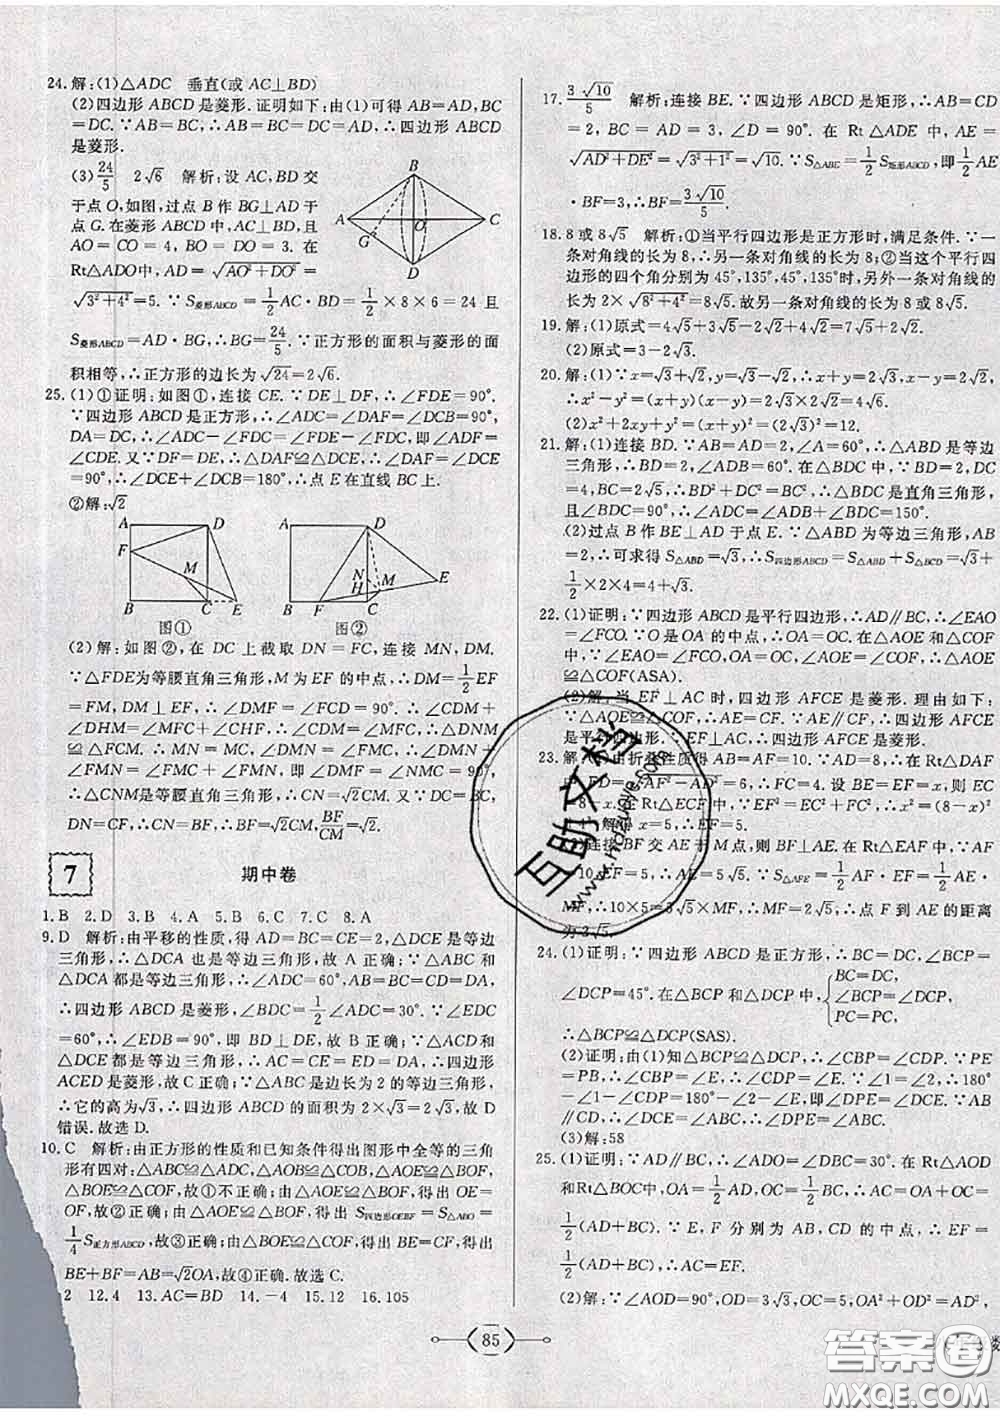 24.解:(1)△ADC　垂直(或 AC⊥BD)
(2)四边形 ABCD 是菱形.证明如下:由(1)可得 AB=AD,BC
=DC.∵AB=BC,∴AB=BC=DC=AD,∴四边形 ABCD
是菱形.
(3)24/5　2√6　解析:设 AC,BD 交
于点 O,如图,过点 B 作 BG⊥AD 于
点 G.在菱形 ABCD 中,AC⊥BD,且
AO=CO=4,BO=DO=3.在
Rt△ADO中,AD=√(AO²+DO²)=
√(3²+4²)=5.∵S菱形ABCD=1/2AC·BD=1/2×8×6=24 且
S菱形ABCD=AD·BG,∴BG=24/5.∵正方形的面积与菱形的面
积相等,∴正方形的边长为√24=2√6.
25.(1)①证明:如图①,连接 CE.∵DE⊥DF,∴∠FDE=90°.
∵四边形 ABCD是正方形,∴∠ADC=∠DAF=∠DCB=90°,
DA=DC,∴∠ADC-∠FDC=∠FDE-∠FDC,即∠ADF=
∠CDE.又∵DF=DE,∴△DAF≌△DCE,∴∠DAF=∠DCE
=90°,∴∠DCE+∠DCB=180°,∴点 E 在直线 BC 上.
②解:√2
A D F M B C E
A D N H M E B F C
图① 图②
(2)解:如图②,在 DC 上截取 DN=FC,连接 MN,DM.
∵△FDE为等腰直角三角形,M 为 EF 的中点,∴DM=1/2EF
=FM,DM⊥EF,∴∠DMF=∠FCD=90°,∴∠CDM+
∠DHM=∠MFC+∠CHF,∴∠CDM=∠MFC,∴△DNM
≌△FCM.∴MN=MC,∠DMN=∠FMC,∴∠DMN+
∠FMN=∠FMC+∠FMN,即∠DMF=∠NMC=90°.
∴△CNM是等腰直角三角形,∴CN=√2CM.又∵DC=BC,
DN=CF,∴CN=BF,∴BF=√2CM,BF/CM=√2.
7 期中卷
1.B　2.D　3.B　4.A　5.B　6.C　7.C　8.A
9.D　解析:由平移的性质,得 AD=BC=CE=2,△DCE 是等边
三角形,∴△DCA 也是等边三角形,故 A 正确;∵△ABC 和
△DCA 都是等边三角形,∴∠ADC=60°,AB=BC=CD=DA,
∴四边形 ABCD 是菱形,∠BDC=1/2∠ADC=30°,∵∠EDC=
60°,∴∠EDB=90°,即 BD⊥DE,故 B 正确;∵△ACD和
△DCE 都是等边三角形,∴AC=CE=ED=DA,∴四边形
ACED 是菱形,故 C 正确;∵△ABC 是边长为 2 的等边三角形,
∴它的高为√3,∴四边形 ABCD 的面积为 2×√3=2√3,故 D
错误.故选 D.
10.C　解析:由正方形的性质和已知条件得出图形中全等的三角
形有四对:△ABC≌△ADC,△AOB≌△COB,△AOE≌△BOF,
△BOE≌△COF,故①不正确;由△AOE≌△BOF,得出 OE=
OF,故②正确;由△AOE≌△BOF,得出 S四边形OEBF=S△ABO=
1/4S正方形ABCD,故③正确;由△BOE≌△COF,得出 BE=CF,得出
BE+BF=AB=√2OA,故④正确.故选 C.
2　12.4　13.AC=BD　14.-4　15.12　16.105
17.3√10/5　解析:连接 BE.∵四边形 ABCD 是矩形,∴AB=CD
=2,BC=AD=3,∠D=90°.在 Rt△ADE 中,AE=
√(AD²+DE²)=√(3²+1²)=√10.∵S△ABE=1/2S矩形ABCD,即1/2AE
·BF=3,∴BF=3√10/5.
18.8 或 8√5　解析:①当平行四边形是正方形时,满足条件.∵一
条对角线的长为 8,∴另一条对角线的长为 8;②当这个平行四
边形的四个角分别为 45°,135°,45°,135°时,另一条对角线的长
为 2×√(8²+4²)=8√5.故另一条对角线的长为 8 或 8√5.
19.解:(1)原式=4√5+3√5-2√2+4√2=7√5+2√2.
(2)原式=3-2√3.
20.解:(1)∵x=√3+√2,y=√3-√2,∴x+y=2√3,x-y=2√2,
∴x²-y²=(x+y)(x-y)=2√3×2√2=4√6.
(2)x²+2xy+y²=(x+y)²=(2√3)²=12.
21.解:(1)连接 BD.∵AB=AD=2,∠A=60°,∴△ABD 是等边
三角形,∴BD=2,∠ADB=60°.在△BDC 中,∵BD=2,DC
=4,BC=2√5,∴BD²+DC²=BC²,∴△BDC 是直角三角形,
∴∠BDC=90°,∴∠ADC=∠ADB+∠BDC=150°.
(2)过点 B 作 BE⊥AD 于点 E.∵△ABD 为等边三角形,AB
=2,∴可求得 S△ABD=√3,∴S四边形ABCD=S△ABD+S△BDC=√3+
1/2×2×4=4+√3.
22.(1)证明:∵四边形 ABCD 是平行四边形,∴AD∥BC,∴∠EAO
=∠FCO.∵O 是OA 的中点,∴OA=OC.在△AOE 和△COF
中,∵∠EAO=∠FCO,OA=OC,∠AOE=∠COF,∴△AOE
≌△COF(ASA).
(2)解:当 EF⊥AC 时,四边形 AFCE 是菱形.理由如下:
∵△AOE≌△COF,∴AE=CF.∵AE∥CF,∴四边形 AFCE
是平行四边形.∵EF⊥AC,∴四边形 AFCE 是菱形.
23.解:(1)由折叠性质得 AB=AF=10.∵AD=8,∴在 Rt△DAF
中,FD=√(AF²-AD²)=6,∴FC=4.设 BE=EF=x,则 EC
=8-x.在 Rt△ECF 中,∵EF²=EC²+FC²,∴x²=(8-x)²
+4²,解得 x=5,∴EF=5.
(2)连接 BF 交 AE 于 M 点,则 BF⊥AE.在 Rt△EAF 中,AF
=10,EF=5,∴AE=5√5.∵S△AFE=1/2AF·EF=1/2AE·
MF,∴10×5=5√5×MF,∴MF=2√5,∴点 F 到 AE 的距离
24.(1)证明:∵四边形 ABCD 是正方形,∴BC=DC,∠BCP=
∠DCP=45°.在△BCP 和△DCP中,{BC=DC, ∠BCP=∠DCP, PC=PC,
∴△BCP≌△DCP(SAS).
(2)证明:由(1)知△BCP≌△DCP,∴∠CBP=∠CDP.∵PE
=PB,∴∠CBP=∠E,∴∠CDP=∠E.∵∠1=∠2,∴180°
-∠1-∠CDP=180°-∠2-∠E,即∠DPE=∠DCE.∵AB
∥CD,∴∠DCE=∠ABC,∴∠DPE=∠ABC.
(3)解:58
25.(1)证明:∵AD∥BC,∴∠ADO=∠DBC=30°.在 Rt△AOD
和Rt△BOC中,OA=1/2AD,OC=1/2BC,∴AC=OA+OC=
1/2(AD+BC).∵E,F 分别为 AB,CD 的中点,∴EF=
1/2(AD+BC),∴AC=EF.
(2)解:∵∠AOD=90°,OD=3√3,∴OA²+OD²=AD²,
85
互助文档
www.hdzuoye.com
答案圈
MXQE.COM
数